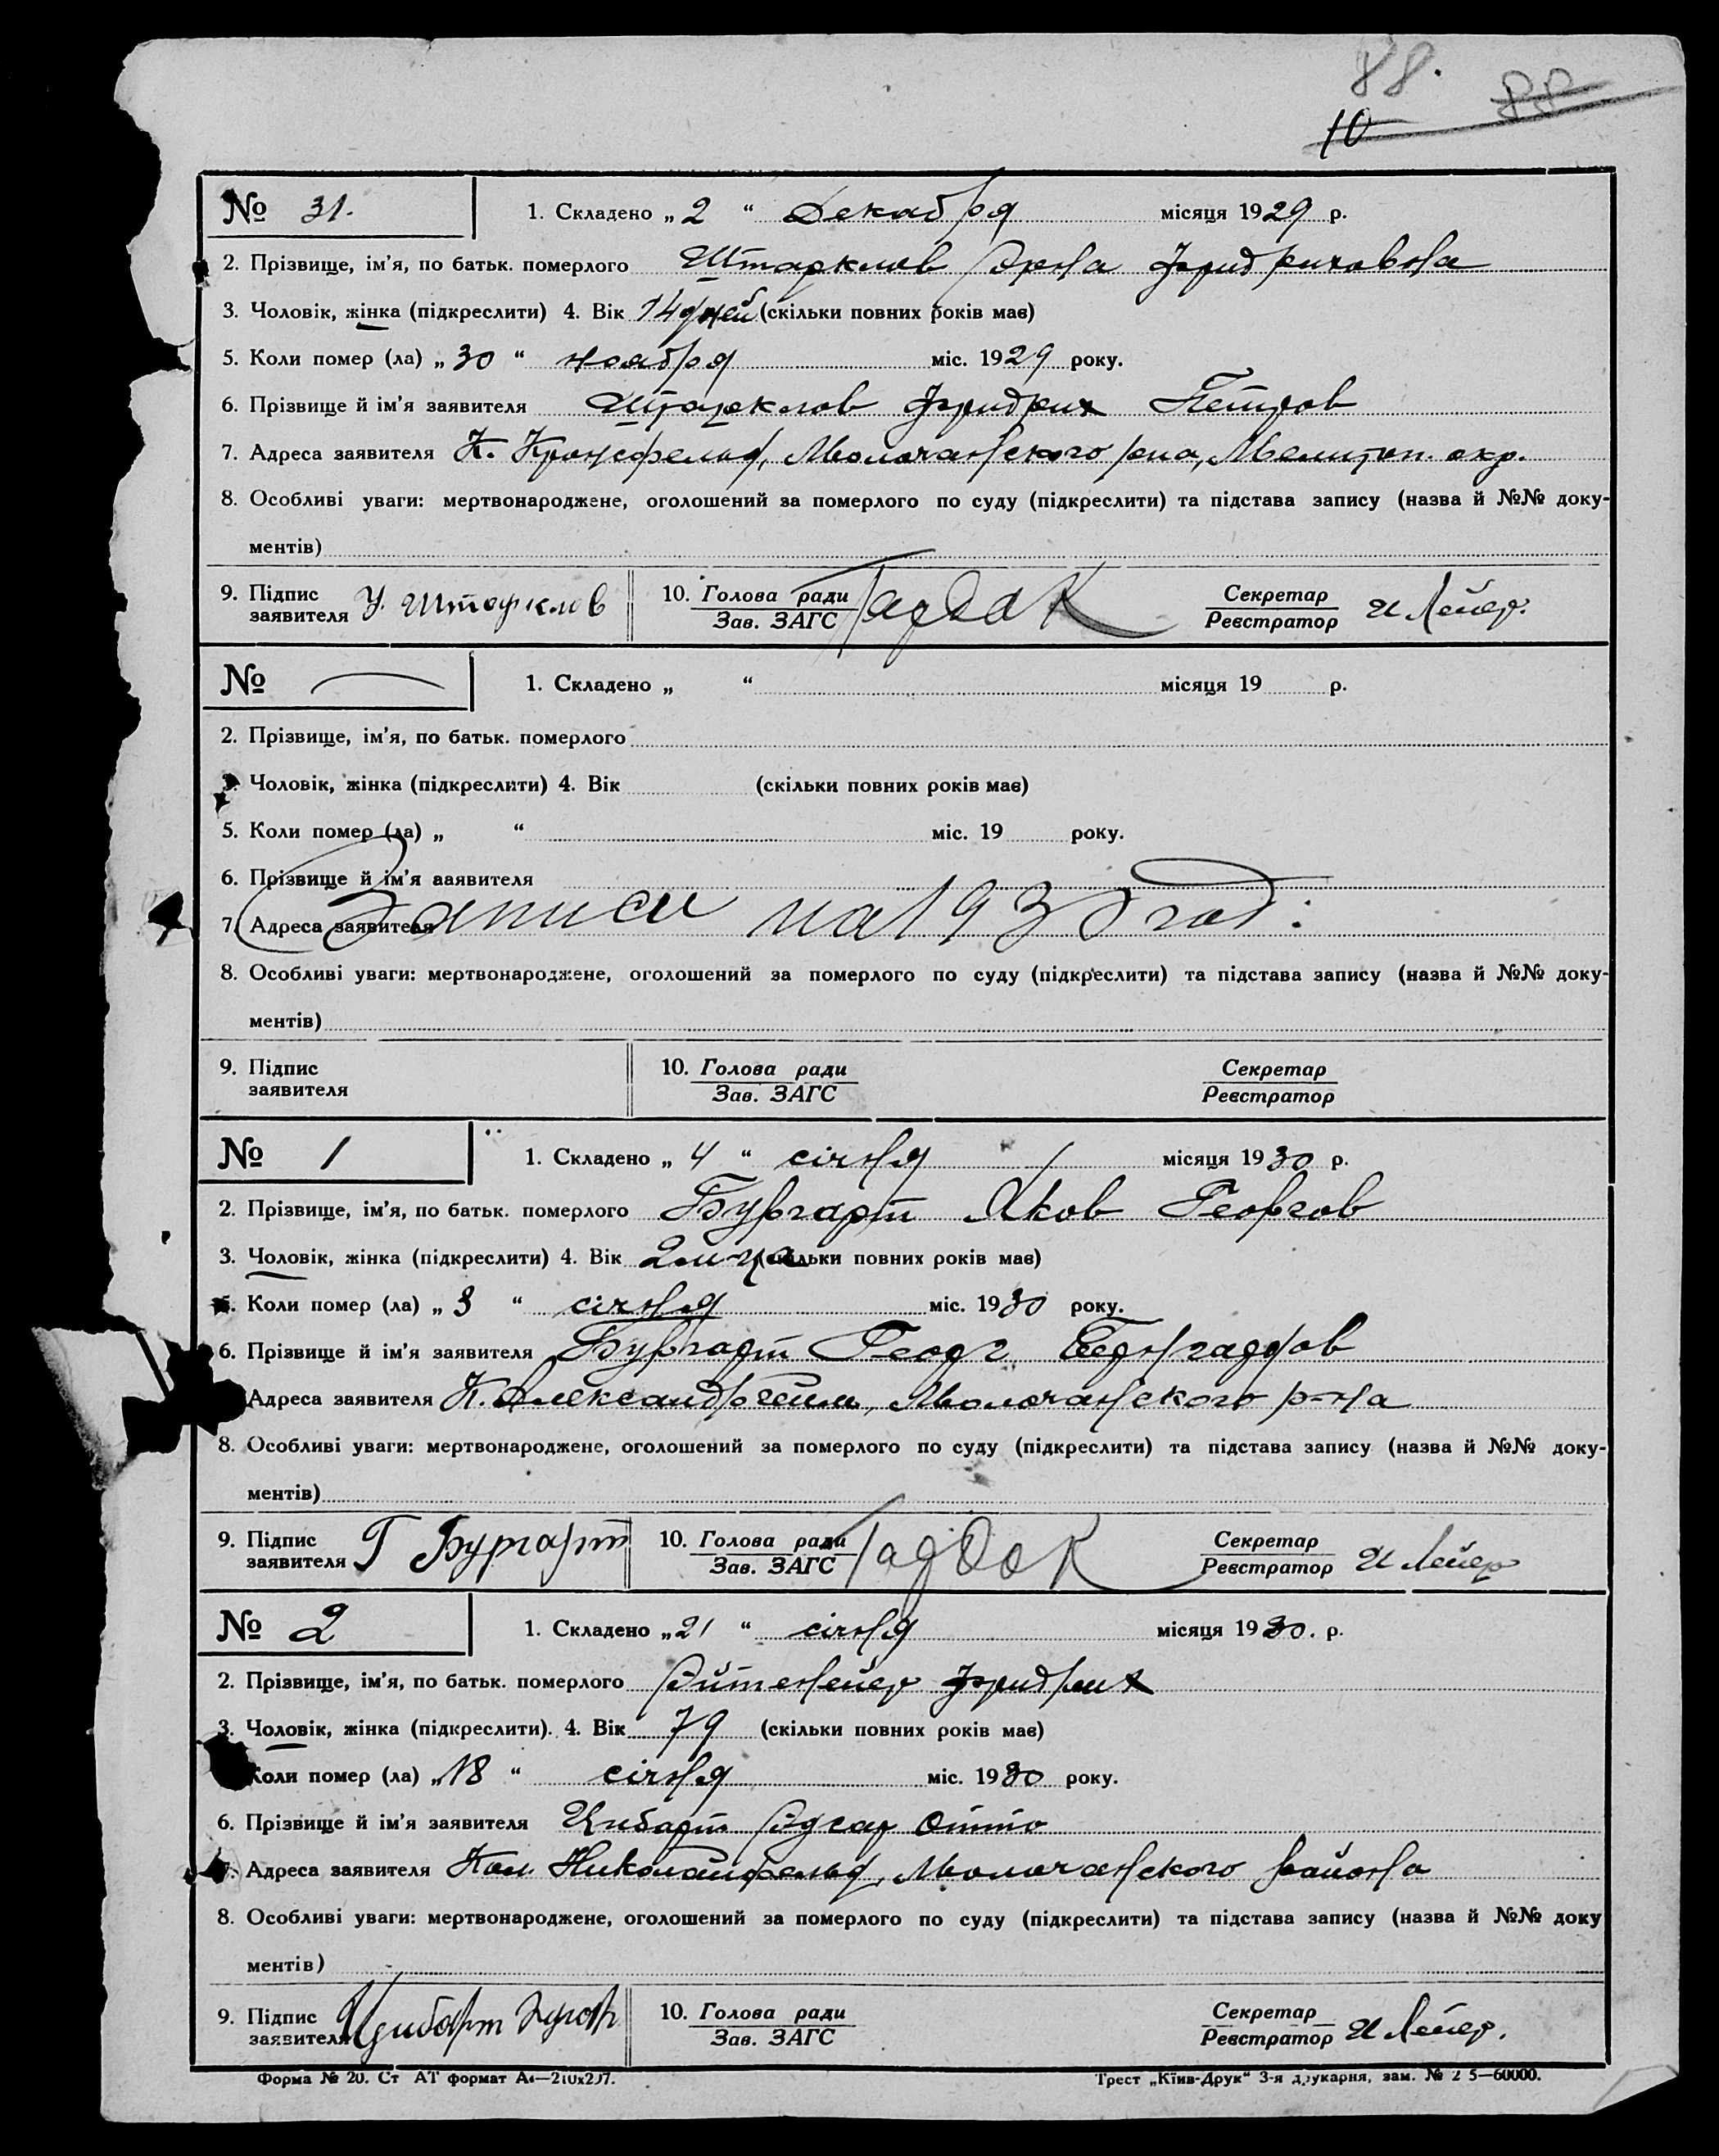 88.
10 88
№ 31. 1. Складено „2“ Декабря місяця 1929 р.
2. Прізвище, ім’я, по батьк. померлого Штарклов Эрна Фридриховна
3. Чоловік, жінка (підкреслити) 4. Вік 14 дней (скільки повних років має)
5. Коли помер (ла) „30“ ноября міс. 1929 року.
6. Прізвище й ім’я заявителя Штарклов Фридрих Петров
7. Адреса заявителя К. Кронсфельд, Молочанского р-на, Мелитоп. окр.
8. Особливі уваги: мертвонароджене, оголошений за померлого по суду (підкреслити) та підстава запису (назва й №№ доку-
ментів)
9. Підпис заявителя У. Штарклов 10. Голова ради Зав. ЗАГС Секретар Реєстратор И Лейер.
№ 1. Складено „ “ місяця 19 р.
2. Прізвище, ім’я, по батьк. померлого
3. Чоловік, жінка (підкреслити) 4. Вік (скільки повних років має)
5. Коли помер (ла) „ “ міс. 19 року.
6. Прізвище й ім’я заявителя
Записи на 1930 год:
7. Адреса заявителя
8. Особливі уваги: мертвонароджене, оголошений за померлого по суду (підкреслити) та підстава запису (назва й №№ доку-
ментів)
9. Підпис заявителя 10. Голова ради Зав. ЗАГС Секретар Реєстратор
№ 1 1. Складено „4“ січня місяця 1930 р.
2. Прізвище, ім’я, по батьк. померлого Бургарт Яков Георгов
3. Чоловік, жінка (підкреслити) 4. Вік 2 м-ца (скільки повних років має)
5. Коли помер (ла) „3“ січня міс. 1930 року.
6. Прізвище й ім’я заявителя Бургарт Георг
Адреса заявителя К. Александргейм, Молочанского р-на
8. Особливі уваги: мертвонароджене, оголошений за померлого по суду (підкреслити) та підстава запису (назва й №№ доку-
ментів)
9. Підпис заявителя Г Бургарт 10. Голова ради Зав. ЗАГС Секретар Реєстратор И Лейер
№ 2 1. Складено „21“ січня місяця 1930. р.
2. Прізвище, ім’я, по батьк. померлого Эйтенейер Фридрих
3. Чоловік, жінка (підкреслити). 4. Вік 79 (скільки повних років має)
Коли помер (ла) „18“ січня міс. 1930 року.
6. Прізвище й ім’я заявителя Цибарт Эдгар Отто
7. Адреса заявителя Кол. Николайфельд, Молочанского района
8. Особливі уваги: мертвонароджене, оголошений за померлого по суду (підкреслити) та підстава запису (назва й №№ доку
ментів)
9. Підпис заявителя Цибарт 10. Голова ради Зав. ЗАГС Секретар Реєстратор И Лейер.
Форма № 20. Ст АТ формат А4—210х297. Трест „Київ-Друк“ 3-я друкарня, зам. № 2 5—60000.